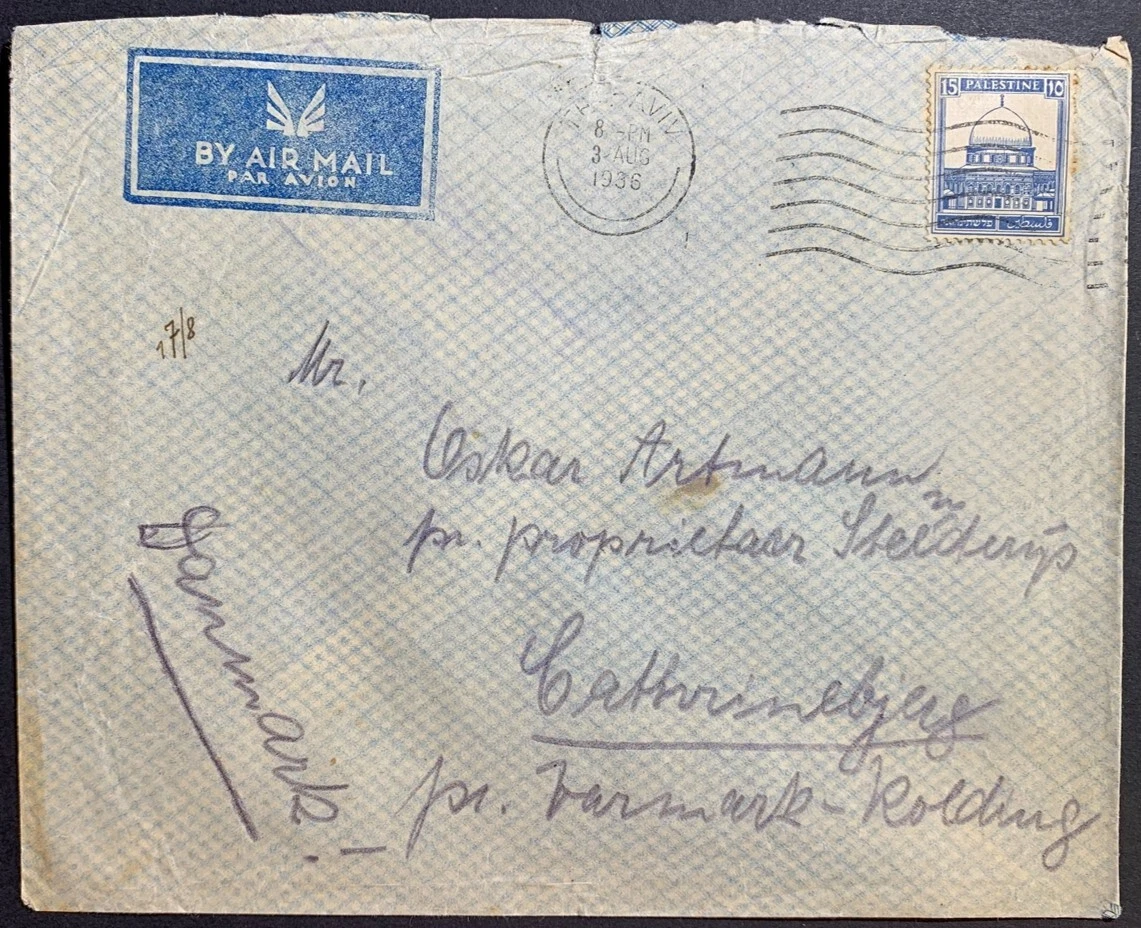 BY AIR MAIL
PAR AVION
TEL AVIV
8 - PM
3 AUG
1936
15 PALESTINE ١٥
فلسطين
17/8
Mr.
Oskar Artmann
pr. proprietaer
Cathrinebjerg
pr. Varmark - Kolding
Danmark!